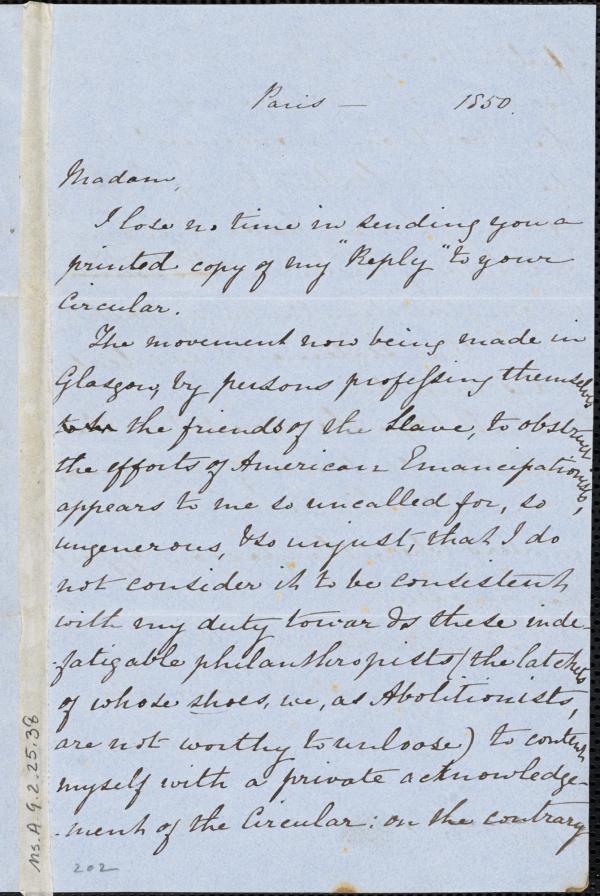 Paris — 1850.
Madam,
I lose no time in sending you a
printed copy of my "Reply" to your
Circular.
The movement now being made in
Glasgow, by persons professing themselves
to be the friends of the Slave, to obstruct
the efforts of American Emancipationists,
appears to me so uncalled for, so
ungenerous, & so unjust, that I do
not consider it to be consistent
with my duty towards these inde-
-fatigable philanthropists (the latchets
of whose shoes, we, as Abolitionists,
are not worthy to unloose) to content
myself with a private acknowledge-
-ment of the Circular: on the contrary
Ms. A. 9. 2. 25. 38
202